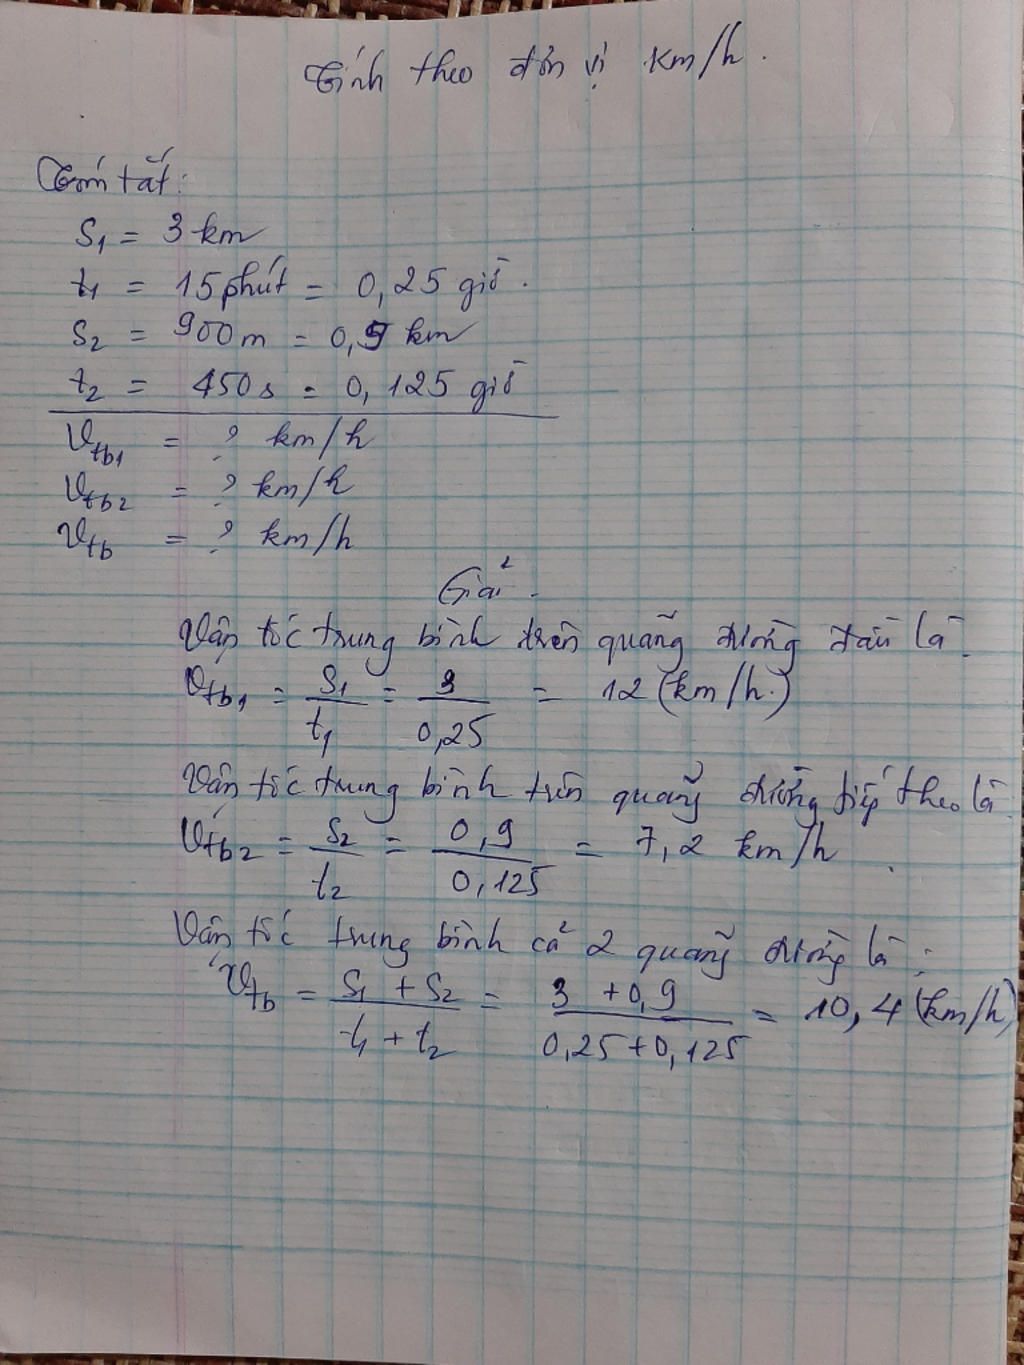 Tính theo đơn vị km/h.
Tóm tắt:
S₁ = 3 km
t₁ = 15 phút = 0,25 giờ.
S₂ = 900 m = 0,9 km
t₂ = 450 s = 0,125 giờ
Vtb₁ = ? km/h
Vtb₂ = ? km/h
Vtb = ? km/h
Giải.
Vận tốc trung bình trên quãng đường đầu là.
Vtb₁ = S₁/t₁ = 3/0,25 = 12 (km/h.)
Vận tốc trung bình trên quãng đường tiếp theo là.
Vtb₂ = S₂/t₂ = 0,9/0,125 = 7,2 km/h.
Vận tốc trung bình cả 2 quãng đường là:
Vtb = S₁ + S₂/t₁ + t₂ = 3 + 0,9/0,25 + 0,125 = 10,4 (km/h)